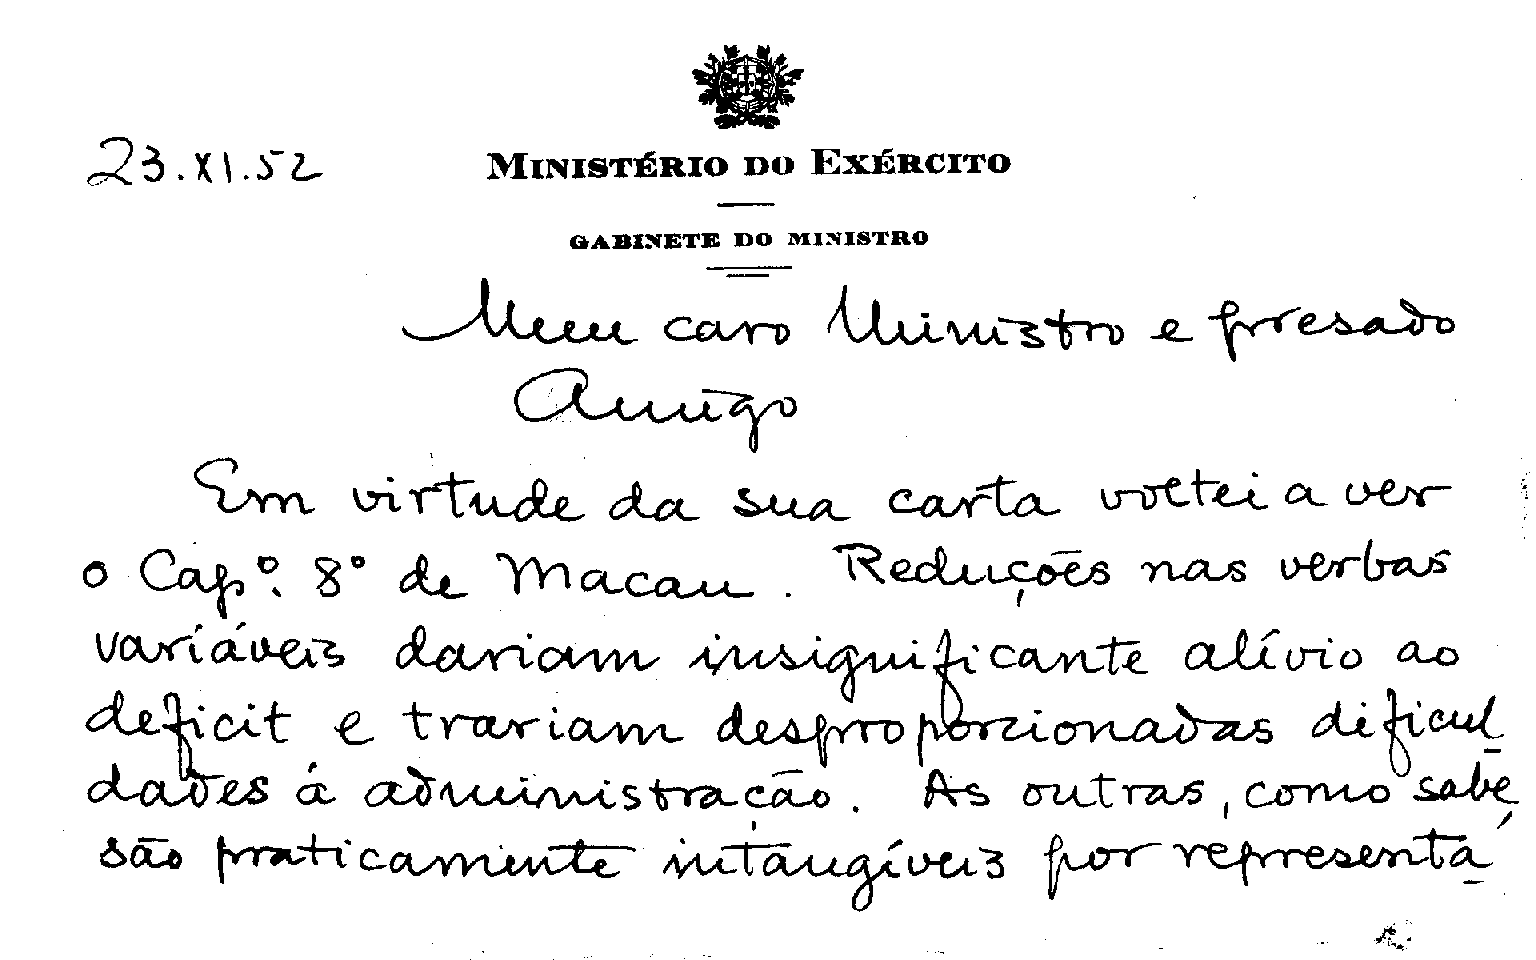 23.XI.52
MINISTÉRIO DO EXÉRCITO
GABINETE DO MINISTRO
Meu caro Ministro e presado
Amigo
Em virtude da sua carta voltei a ver
o Capº. 8º de Macau. Reduções nas verbas
variáveis dariam insignificante alívio ao
deficit e trariam desproporcionadas dificul-
dades á administração. As outras, como sabe,
são praticamente intangíveis por representa-